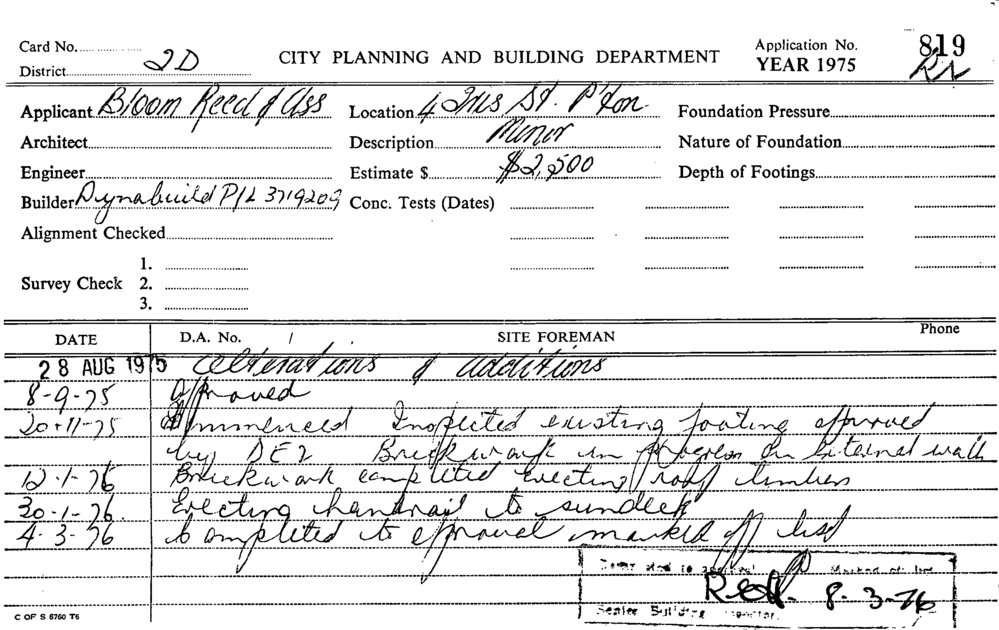 Card No. 2D
District
CITY PLANNING AND BUILDING DEPARTMENT
Application No. 819
YEAR 1975
Applicant Bloom Reed & Ass
Location 4 Inis St. P'ton
Foundation Pressure
Architect
Description Minor
Nature of Foundation
Engineer
Estimate $ $2,500
Depth of Footings
Builder Dynabuild P/L 3719209
Conc. Tests (Dates)
Alignment Checked
Survey Check
1.
2.
3.
DATE D.A. No. / SITE FOREMAN Phone
28 AUG 1975 Alterations & additions
8-9-75 Approved
20-11-75 Commenced Inspected existing footing approved
by DE2 Brickwork in progress on internal walls
12-1-76 Brickwork completed Erecting roof timbers
30-1-76. Erecting handrail to sundeck
4-3-76 Completed to approval marked off list
Completed to approval Marked off list
8-3-76
Senior Building Inspector
C OF S 6760 T6